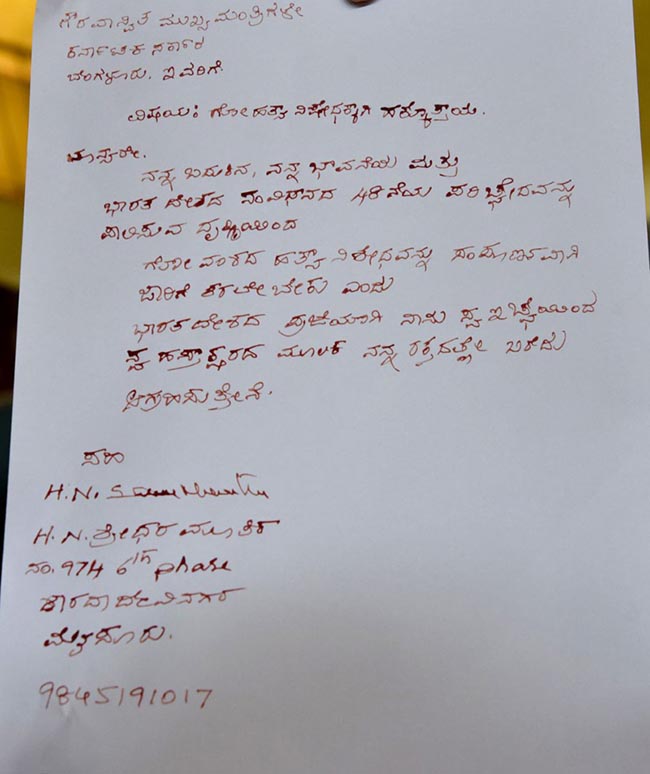 ಗೌರವಾನ್ವಿತ ಮುಖ್ಯ ಮಂತ್ರಿಗಳೇ
ಕರ್ನಾಟಕ ಸರ್ಕಾರ
ಬೆಂಗಳೂರು. ಇವರಿಗೆ
ವಿಷಯ: ಗೋಹತ್ಯಾ ನಿಷೇಧಕ್ಕಾಗಿ ಹಕ್ಕೊತ್ತಾಯ.
ಮಾನ್ಯರೇ.
ನನ್ನ ಬದುಕಿನ, ನನ್ನ ಭಾವನೆಯ ಮತ್ತು
ಭಾರತ ದೇಶದ ಸಂವಿಧಾನದ 48ನೆಯ ಪರಿಚ್ಛೇದವನ್ನು
ಪಾಲಿಸುವ ದೃಷ್ಟಿಯಿಂದ
ಗೋವಂಶದ ಹತ್ಯಾ ನಿಶೇಧವನ್ನು ಸಂಪೂರ್ಣವಾಗಿ
ಜಾರಿಗೆ ತರಲೇಬೇಕು ಎಂದು
ಭಾರತದೇಶದ ಪ್ರಜೆಯಾಗಿ ನಾನು ಸ್ವ ಇಚ್ಛೆಯಿಂದ
ಸ್ವ ಹಸ್ತಾಕ್ಷರದ ಮೂಲಕ ನನ್ನ ರಕ್ತದಲ್ಲೇ ಬರೆದು
ಆಗ್ರಹಿಸುತ್ತೇನೆ.
ಸಹಿ
H.N.
H.N. ಶ್ರೀಧರ ಮೂರ್ತಿ
ನಂ. 974 6th phase
ಶಾರದಾದೇವಿನಗರ
ಮೈಸೂರು.
9845191017